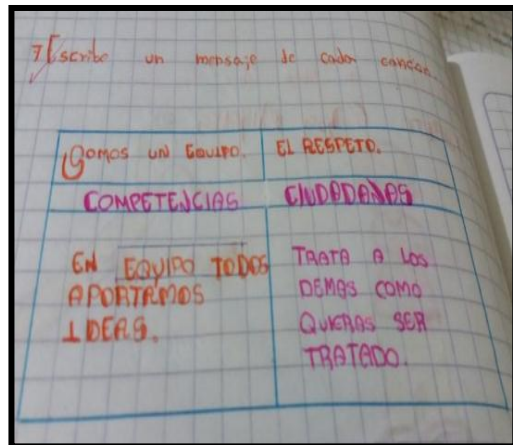 7 Escribe un mensaje de cada canción.
Somos UN EQUIPO. EL RESPETO.
COMPETENCIAS CIUDADANAS
EN EQUIPO TODOS
APORTAMOS
IDEAS.
TRATA A LOS
DEMAS COMO
QUIERAS SER
TRATADO.